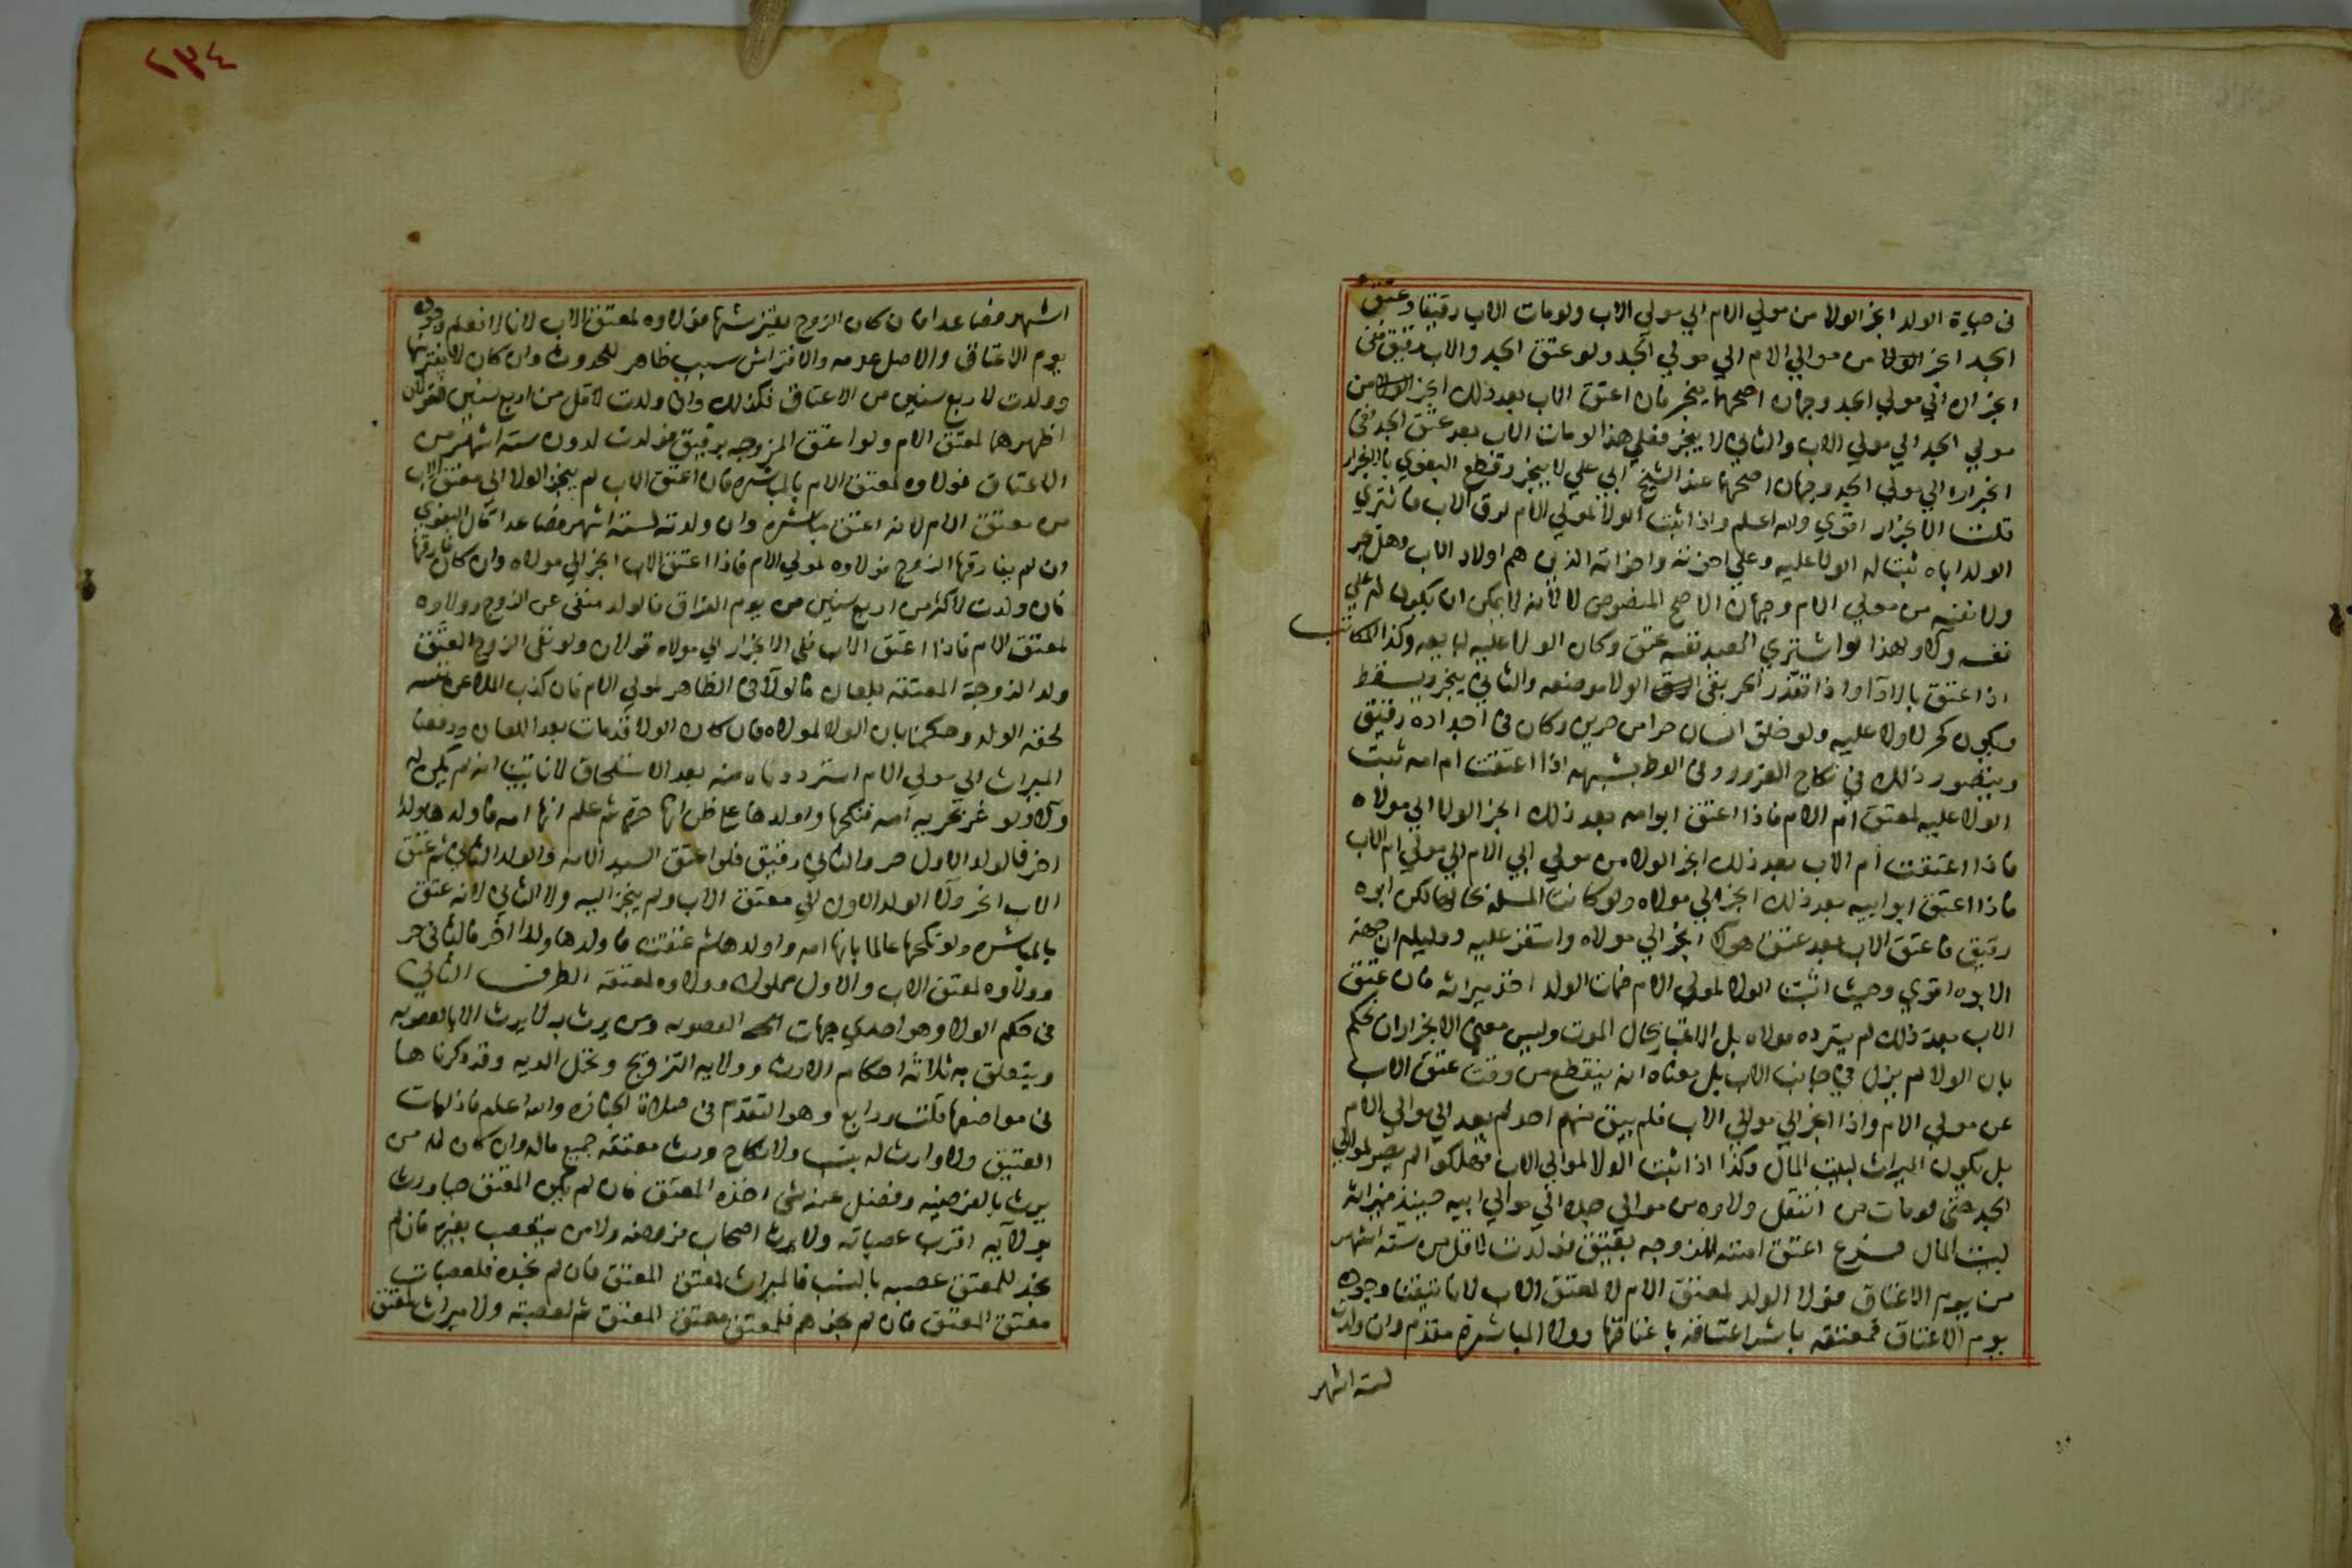 في حياة الولد انجر الولا من مولي الام الي مولي الاب ولو مات الاب رقيقا وعتق
الجد انجر الولا من موالي الام الي مولي الجد ولو عتق الجد والاب رقيق ففي
انجراره الي مولي الجد وجهان اصحهما ينجر فان اعتق الاب بعد ذلك انجر الولا من
مولي الجد الي مولي الاب والثاني لا ينجر فعلي هذا لو مات الاب بعد عتق الجد ففي
انجراره الي مولي الجد وجهان اصحهما عند الشيخ ابي علي لا ينجر وقطع البغوي بالانجرار
قلت الانجرار اقوي والله اعلم واذا ثبت الولا لمولي الام لرق الاب فاشتري
الولد اباه ثبت له الولا عليه وعلي اخوته واخواته الذين هم اولاد الاب وهل يجر
ولا نفسه من مولي الام وجهان الاصح المنصوص لا لانه لا يمكن ان يكون له علي
نفسه ولا ولهذا لو اشتري العبد نفسه عتق وكان الولا عليه لبايعه وكذا المكاتب
اذا عتق بالادا واذا تعذر الجر بقي الولا موضعه والثاني ينجر ويسقط
ويكون كحر لا ولا عليه ولو خلق انسان حر من حرين وكان في اجداده رقيق
ويتصور ذلك في نكاح الغرور وفي الوط بشبهه اذا اعتقت ام امه ثبت
الولا عليه لمعتق ام الام فاذا اعتق ابو امه بعد ذلك انجر الولا الي مولاه
فاذا اعتقت ام الاب بعد ذلك انجر الولا من مولي ابي الام الي مولي ام الاب
فاذا اعتق ابو ابيه بعد ذلك انجر الي مولاه ولو كانت المسله بحالها لكن ابوه
رقيق فاعتق الاب بعد عتق هولا انجر الي مولاه واستقر عليه ودليله ان جهة
الابوه اقوي وحيث اثبتنا الولا لمولي الام فمات الولد اخذ ميراثه فان عتق
الاب بعد ذلك لم يسترده مولاه بل الاعتبار بحال الموت وليس معني الانجرار ان نحكم
بان الولا لم يزل في جانب الاب بل معناه انه ينقطع من وقت عتق الاب
عن مولي الام واذا انجر الي موالي الاب فلم يبق منهم احد لم يعد الي موالي الام
بل يكون الميراث لبيت المال وكذا اذا ثبت الولا لموالي الاب فهلكوا لم يصر لموالي
الجد حتى لو مات من انتقل ولاوه من موالي جده الي موالي ابيه حينيذ فميراثه
لبيت المال فرع اعتق امته المزوجه بعتيق فولدت لاقل من ستة اشهر
من يوم الاعتاق فولا الولد لمعتق الام لا لمعتق الاب لانا تيقنا وجوده
يوم الاعتاق فمعتقه باشر اعتاقه باعتاقها وولا المباشرة مقدم وان ولدت
لستة اشهر
٢٣٤
اشهر فصاعدا فان كان الزوج يفترشها فولاوه لمعتق الاب لانا لا نعلم وجوده
يوم الاعتاق والاصل عدمه والافتراش سبب ظاهر للحدوث وان كان لا يفترشها
وولدت لاربع سنين من الاعتاق فكذلك وان ولدت لاقل من اربع سنين فقولان
اظهرهما لمعتق الام ولو اعتق المزوجه برقيق فولدت لدون ستة اشهر من
الاعتاق فولاوه لمعتق الام بالمباشره فان اعتق الاب لم ينجر الولا الي معتق الاب
من معتق الام لانه اعتق مباشره وان ولدته لستة اشهر فصاعدا قال البغوي
ان لم يفارقها الزوج فولاوه لمولي الام فاذا اعتق الاب انجر الي مولاه وان كان فارقها
فان ولدت لاكثر من اربع سنين من يوم الفراق فالولد منفي عن الزوج وولاوه
لمعتق الام فاذا اعتق الاب ففي الانجرار الي مولاه قولان ولو نفي الزوج العتيق
ولد الزوجة المعتقه بلعان فالولا في الظاهر لمولي الام فان كذب الملاعن نفسه
لحقه الولد وحكمنا بان الولا لمولاه فان كان الولد قد مات بعد اللعان ودفعنا
الميراث الي مولي الام استرددناه منه بعد الاستلحاق لانا تبينا انه لم يكن له
ولا ولو غر بحرية امه فنكحها واولدها علي ظن انها حرة ثم علم انها امه فاولدها ولدا
اخر فالولد الاول حر والثاني رقيق فلو اعتق السيد الامه والولد الثاني ثم عتق
الاب انجر ولا الولد الاول الي معتق الاب ولم ينجر اليه ولا الثاني لانه عتق
بالمباشره ولو نكحها عالما بانها امه واولدها ثم عتقت فاولدها ولدا اخر فالثاني حر
وولاوه لمعتق الاب والاول مملوك وولاوه لمعتقه الطرف الثاني
في حكم الولا وهو احدي جهات العصوبه ومن يرث به لا يرث الا بالعصوبه
ويتعلق به ثلاثة احكام الارث وولايه التزويج وتحمل الديه وقد ذكرناها
في مواضعها قلت ورابع وهو التقدم في صلاة الجنازه والله اعلم فاذا مات
العتيق ولا وارث له بنسب ولا نكاح ورث معتقه جميع ماله وان كان له من
يرث بالفرضيه وفضل عنه شي اخذه المعتق فان لم يكن المعتق حيا ورث
بولايه اقرب عصباته ولا يرث اصحاب فروضه ولا من يتعصب بغيره فان لم
نجد للمعتق عصبه بالنسب فالميراث لمعتق المعتق فان لم نجده فلعصبات
معتق المعتق فان لم نجدهم فلمعتق معتق المعتق ثم لعصبته ولا ميراث لمعتق